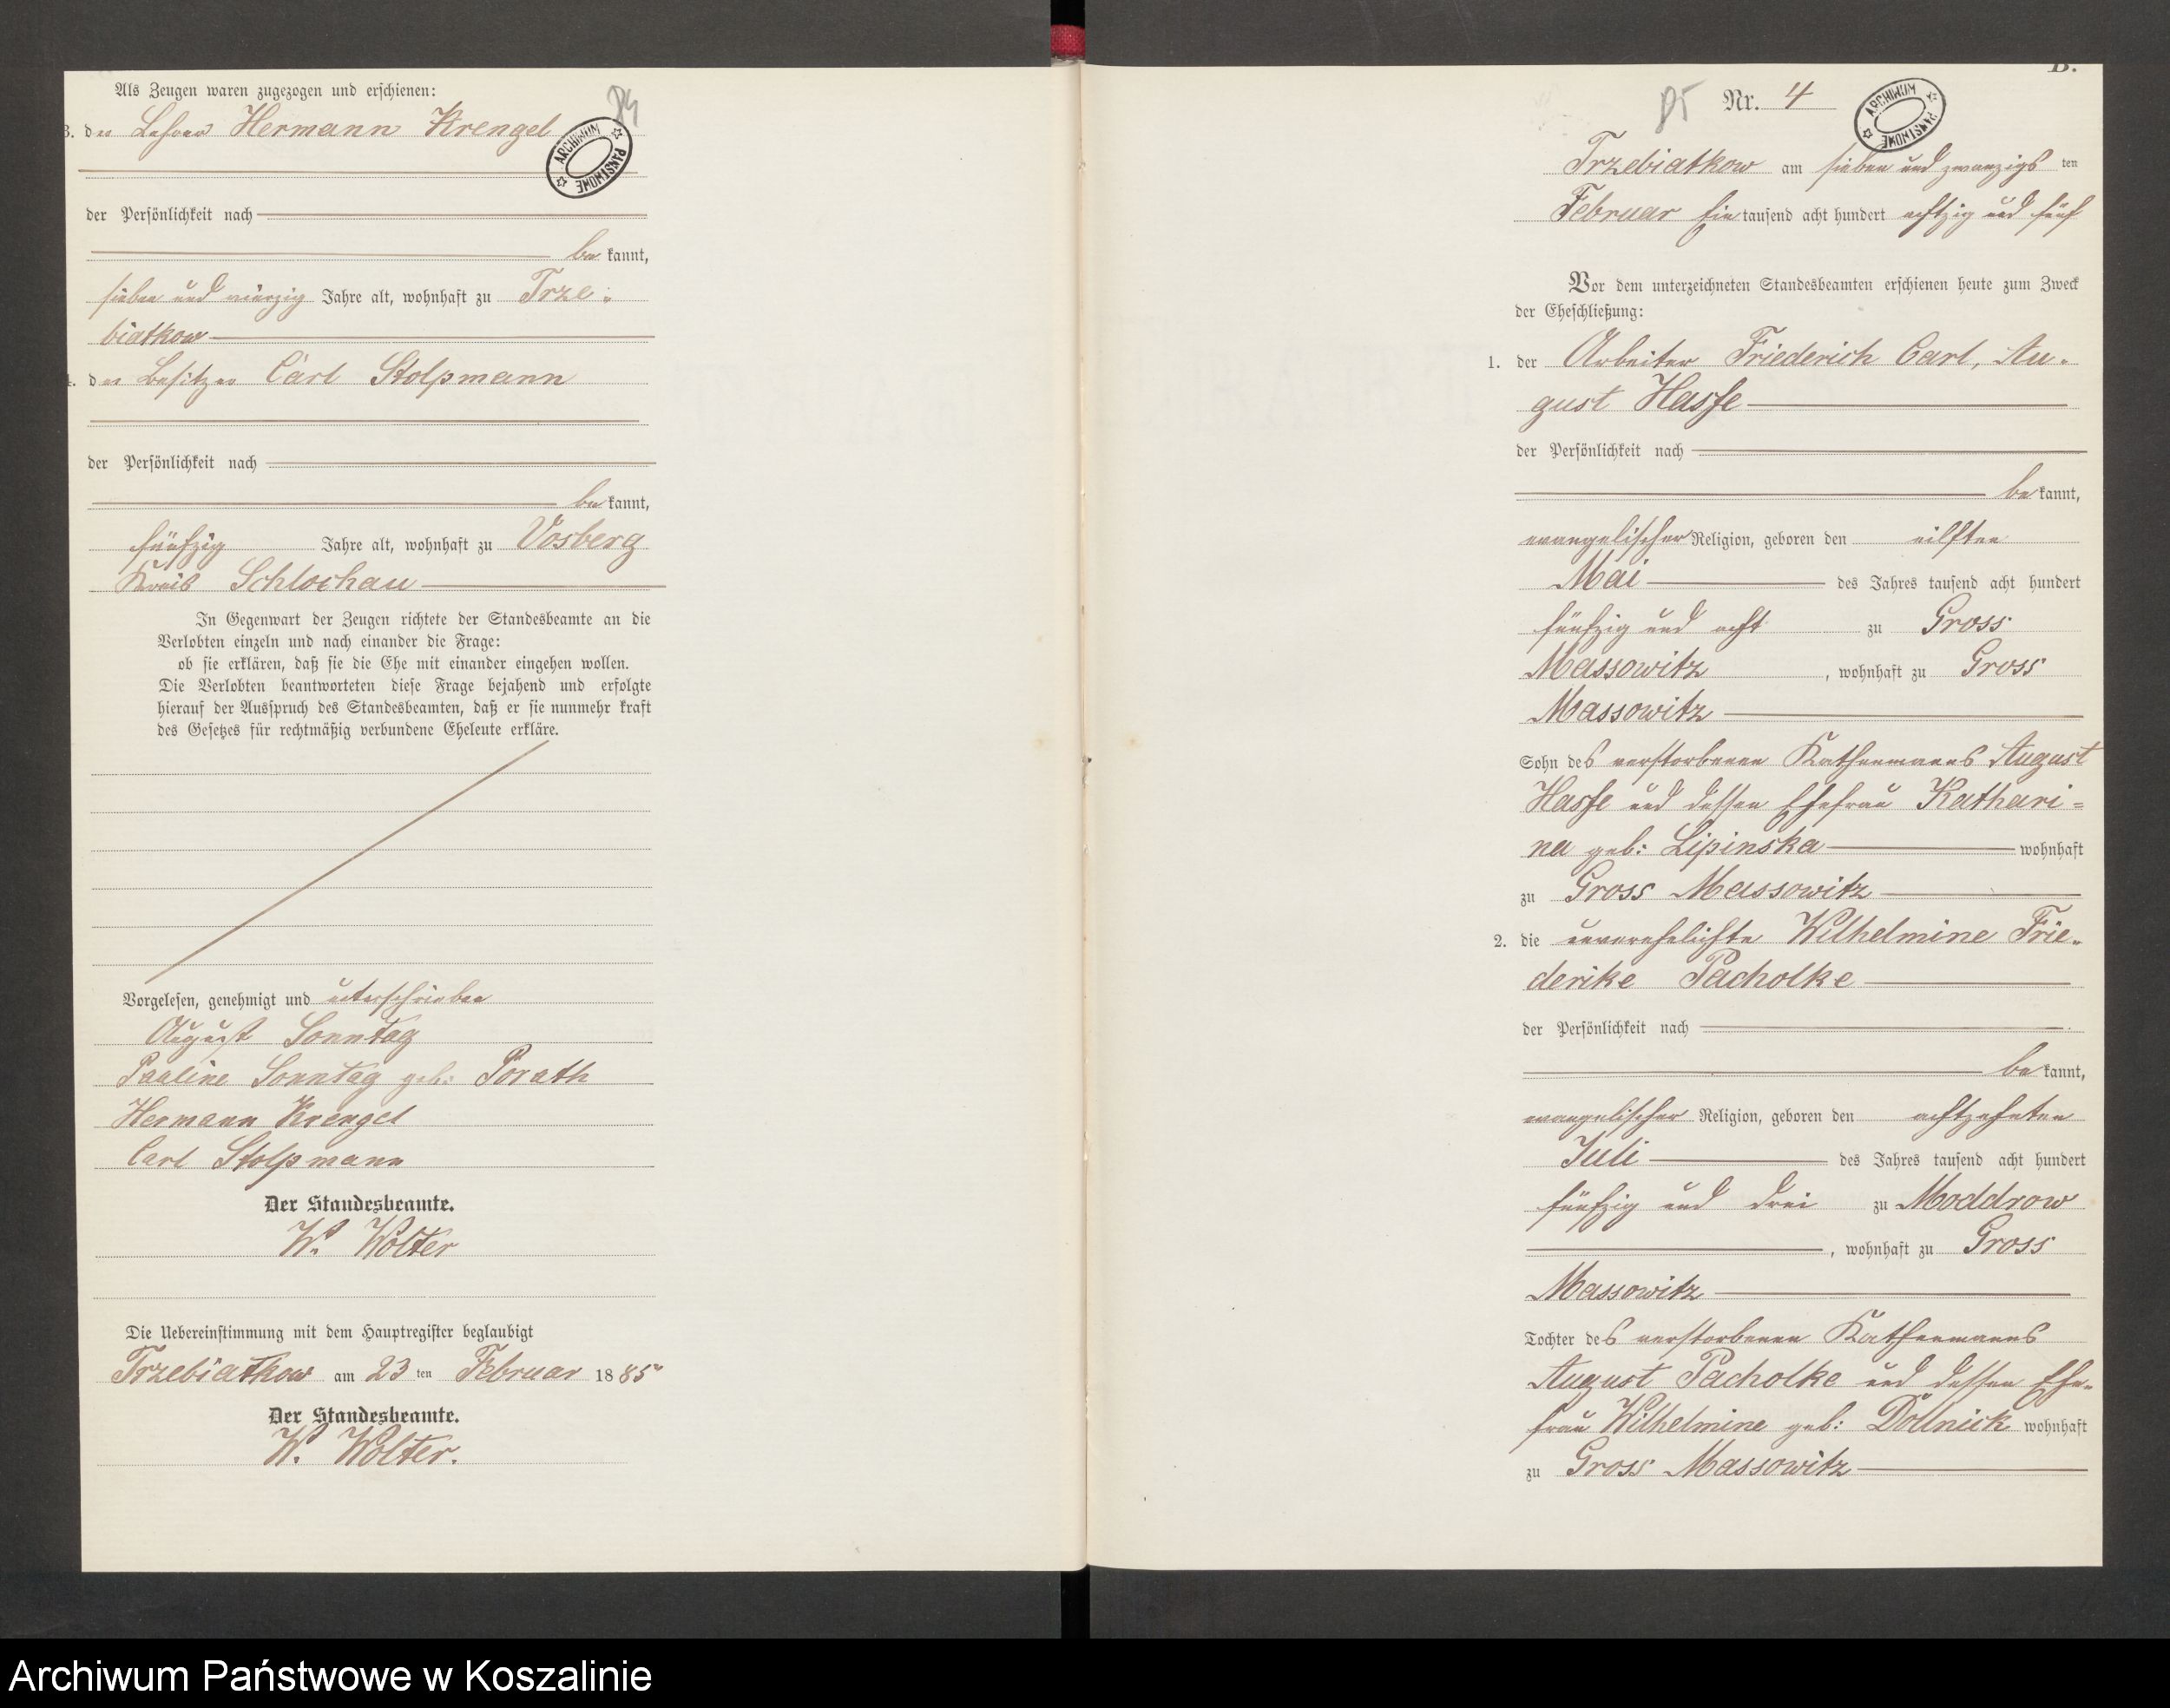 Als Zeugen waren zugezogen und erschienen:
3. der Lehrer Hermann Krengel
84
ARCHIWUM PAŃSTWOWE
der Persönlichkeit nach
be kannt,
sieben und vierzig Jahre alt, wohnhaft zu Trze-
biatkow
4. der Besitzer Carl Stolpmann
der Persönlichkeit nach
be kannt,
fünfzig Jahre alt, wohnhaft zu Vosberg
Kreis Schlochau
In Gegenwart der Zeugen richtete der Standesbeamte an die
Verlobten einzeln und nach einander die Frage:
ob sie erklären, daß sie die Ehe mit einander eingehen wollen.
Die Verlobten beantworteten diese Frage bejahend und erfolgte
hierauf der Ausspruch des Standesbeamten, daß er sie nunmehr kraft
des Gesetzes für rechtmäßig verbundene Eheleute erkläre.
Vorgelesen, genehmigt und unterschrieben
August Sonntag
Pauline Sonntag geb: Porath
Hermann Krengel
Carl Stolpmann
Der Standesbeamte.
W. Wolter
Die Uebereinstimmung mit dem Hauptregister beglaubigt
Trzebiatkow am 23 ten Februar 18 85
Der Standesbeamte.
W. Wolter.
B.
85 Nr. 4
ARCHIWUM PAŃSTWOWE
Trzebiatkow am sieben und zwanzigs ten
Februar Ein tausend acht hundert achtzig und fünf
Vor dem unterzeichneten Standesbeamten erschienen heute zum Zweck
der Eheschließung:
1. der Arbeiter Friederich Carl, Au-
gust Hasse
der Persönlichkeit nach
be kannt,
evangelischer Religion, geboren den eilften
Mai des Jahres tausend acht hundert
fünfzig und acht zu Gross
Massowitz , wohnhaft zu Gross
Massowitz
Sohn des verstorbenen Kathenmanns August
Hasse und dessen Ehefrau Kathari=
na geb: Lipinska wohnhaft
zu Gross Massowitz
2. die unverehelichte Wilhelmine Frie-
derike Pacholke
der Persönlichkeit nach
be kannt,
evangelischer Religion, geboren den achtzehnten
Juli des Jahres tausend acht hundert
fünfzig und drei zu Moddrow
, wohnhaft zu Gross
Massowitz
Tochter des verstorbenen Kathenmanns
August Pacholke und dessen Ehe-
frau Wilhelmine geb: Dollnick wohnhaft
zu Gross Massowitz
Archiwum Państwowe w Koszalinie